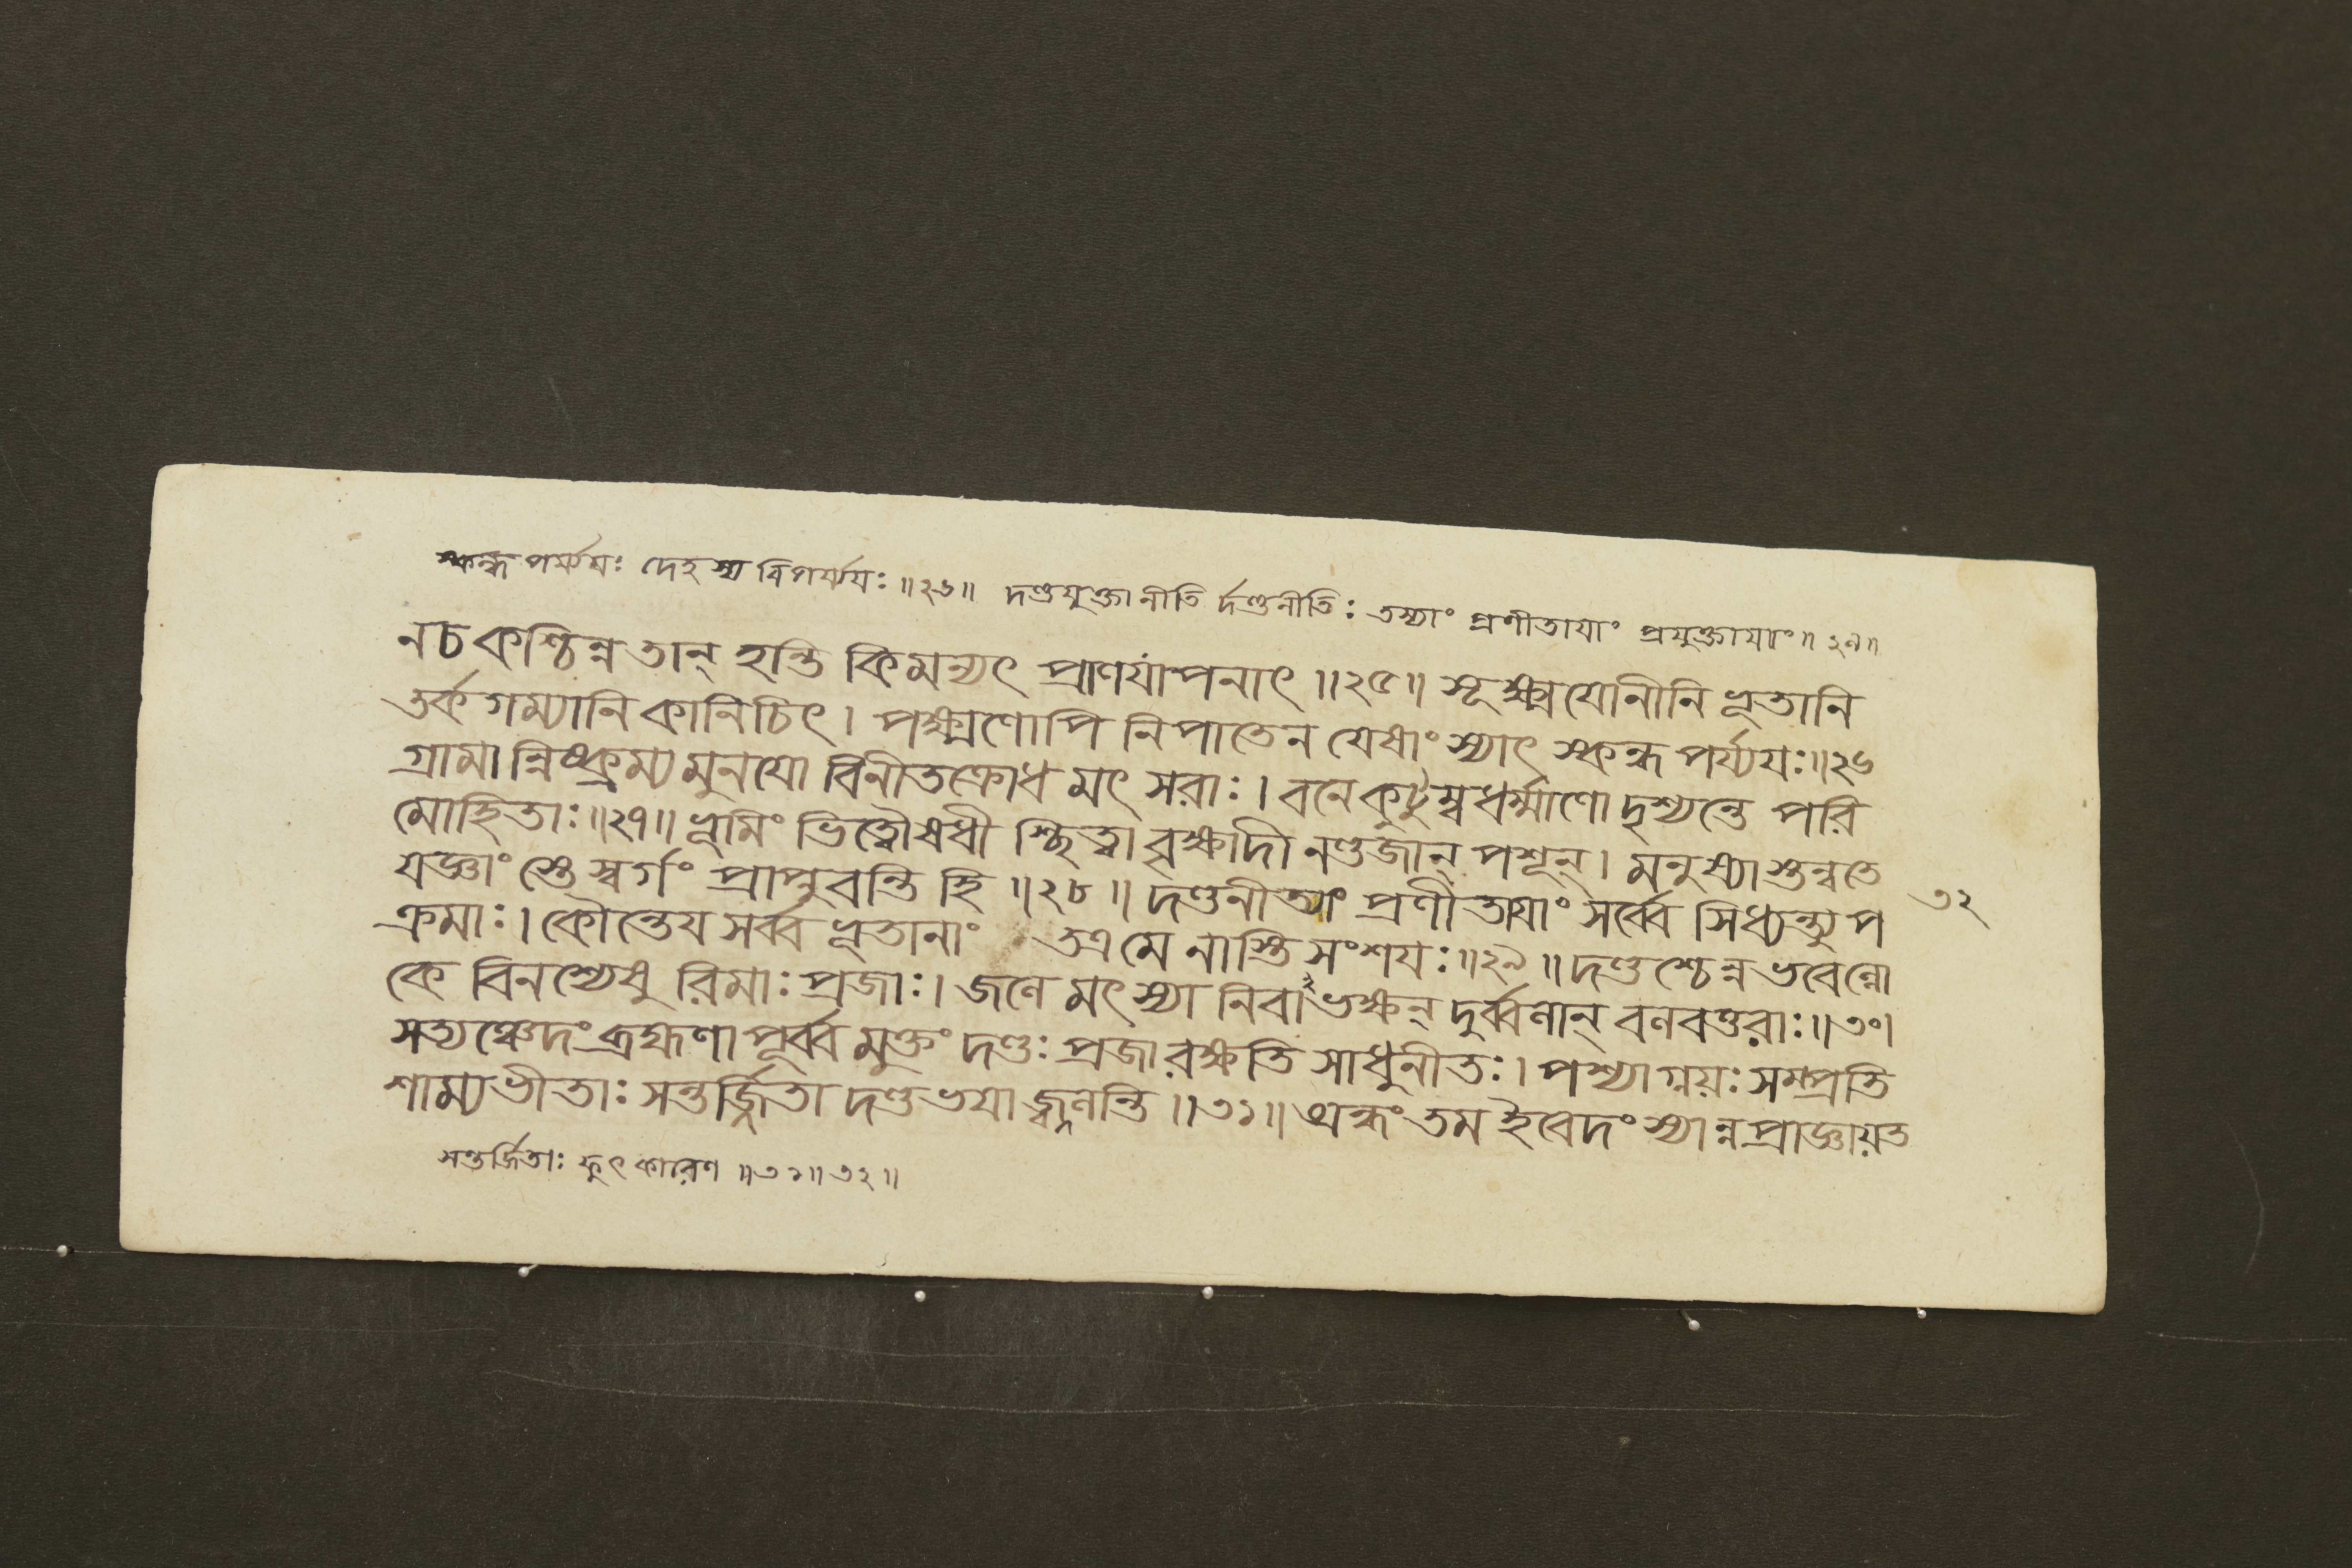 স্কন্ধপর্য্যয়ঃ দেহস্য বিপর্য্যয়ঃ ॥২৬॥ দণ্ডযুক্তা নীতি র্দণ্ডনীতিঃ তস্যাং প্রণীতাযাং প্রযুক্তাযাং॥২৯॥
নচ কশ্চিন্ন তান্ হন্তি কিমন্যৎ প্রাণযাপনাৎ ॥২৫॥ সূক্ষ্মযোনীনি ভূতানি
তর্কগম্যানি কানিচিৎ। পক্ষ্মণোপি নিপাতেন যেষাং স্যাৎ স্কন্ধপর্য্যযঃ॥২৬
গ্রামান্নিষ্ক্রম্য মুনযো বিনীতক্রোধ মৎসরাঃ। বনে কুটুম্বধর্ম্মাণো দৃশ্যন্তে পরি
মোহিতাঃ॥২৭॥ ভূমিং ভিত্বৌষধী শ্ছিত্বা বৃক্ষাদী নণ্ডজান্ পশূন্। মনুষ্যাস্তন্বতে
যজ্ঞাং স্তে স্বর্গং প্রাপ্নুবন্তি হি ॥২৮॥ দণ্ডনীত্যাং প্রণীতাযাং সর্ব্বে সিধ্যন্ত্যুপ
৩২
ক্রমাঃ। কৌন্তেয সর্ব্ব ভূতানাং তত্র মে নাস্তি সংশযঃ॥২৯॥ দণ্ডশ্চেন্ন ভবেল্লো
কে বিনশ্যেষু রিমাঃ প্রজাঃ। জলে মৎস্যা নিবাভক্ষন্ দুর্ব্বলান্ বলবত্তরাঃ॥৩০।
সত্যঞ্চেদং ব্রহ্মণা পূর্ব্ব মুক্তং দণ্ডঃ প্রজা রক্ষতি সাধুনীতঃ। পশ্যাগ্নয়ঃ সম্প্রতি
শাম্যভীতাঃ সন্তর্জ্জিতা দণ্ডভযাজ্জ্বলন্তি ॥৩১॥ অন্ধং তম ইবেদং স্যান্ন প্রাজ্ঞায়ত
সন্তর্জিতাঃ ফুৎকারেণ ॥৩১॥৩২॥